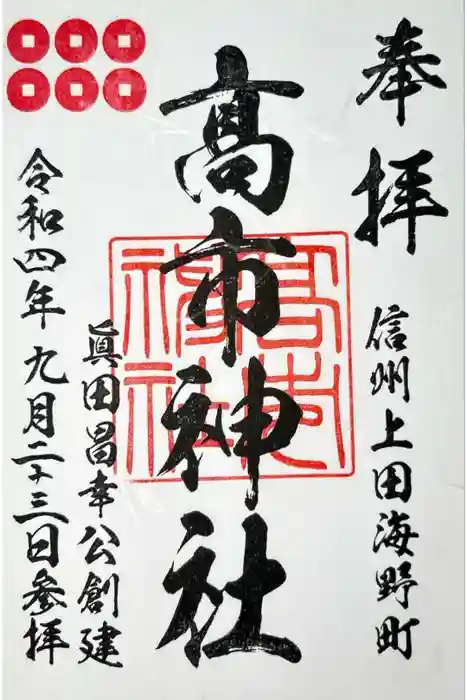 奉拝
信州上田海野町
髙市神社
眞田昌幸公創建
令和四年九月二十三日参拝